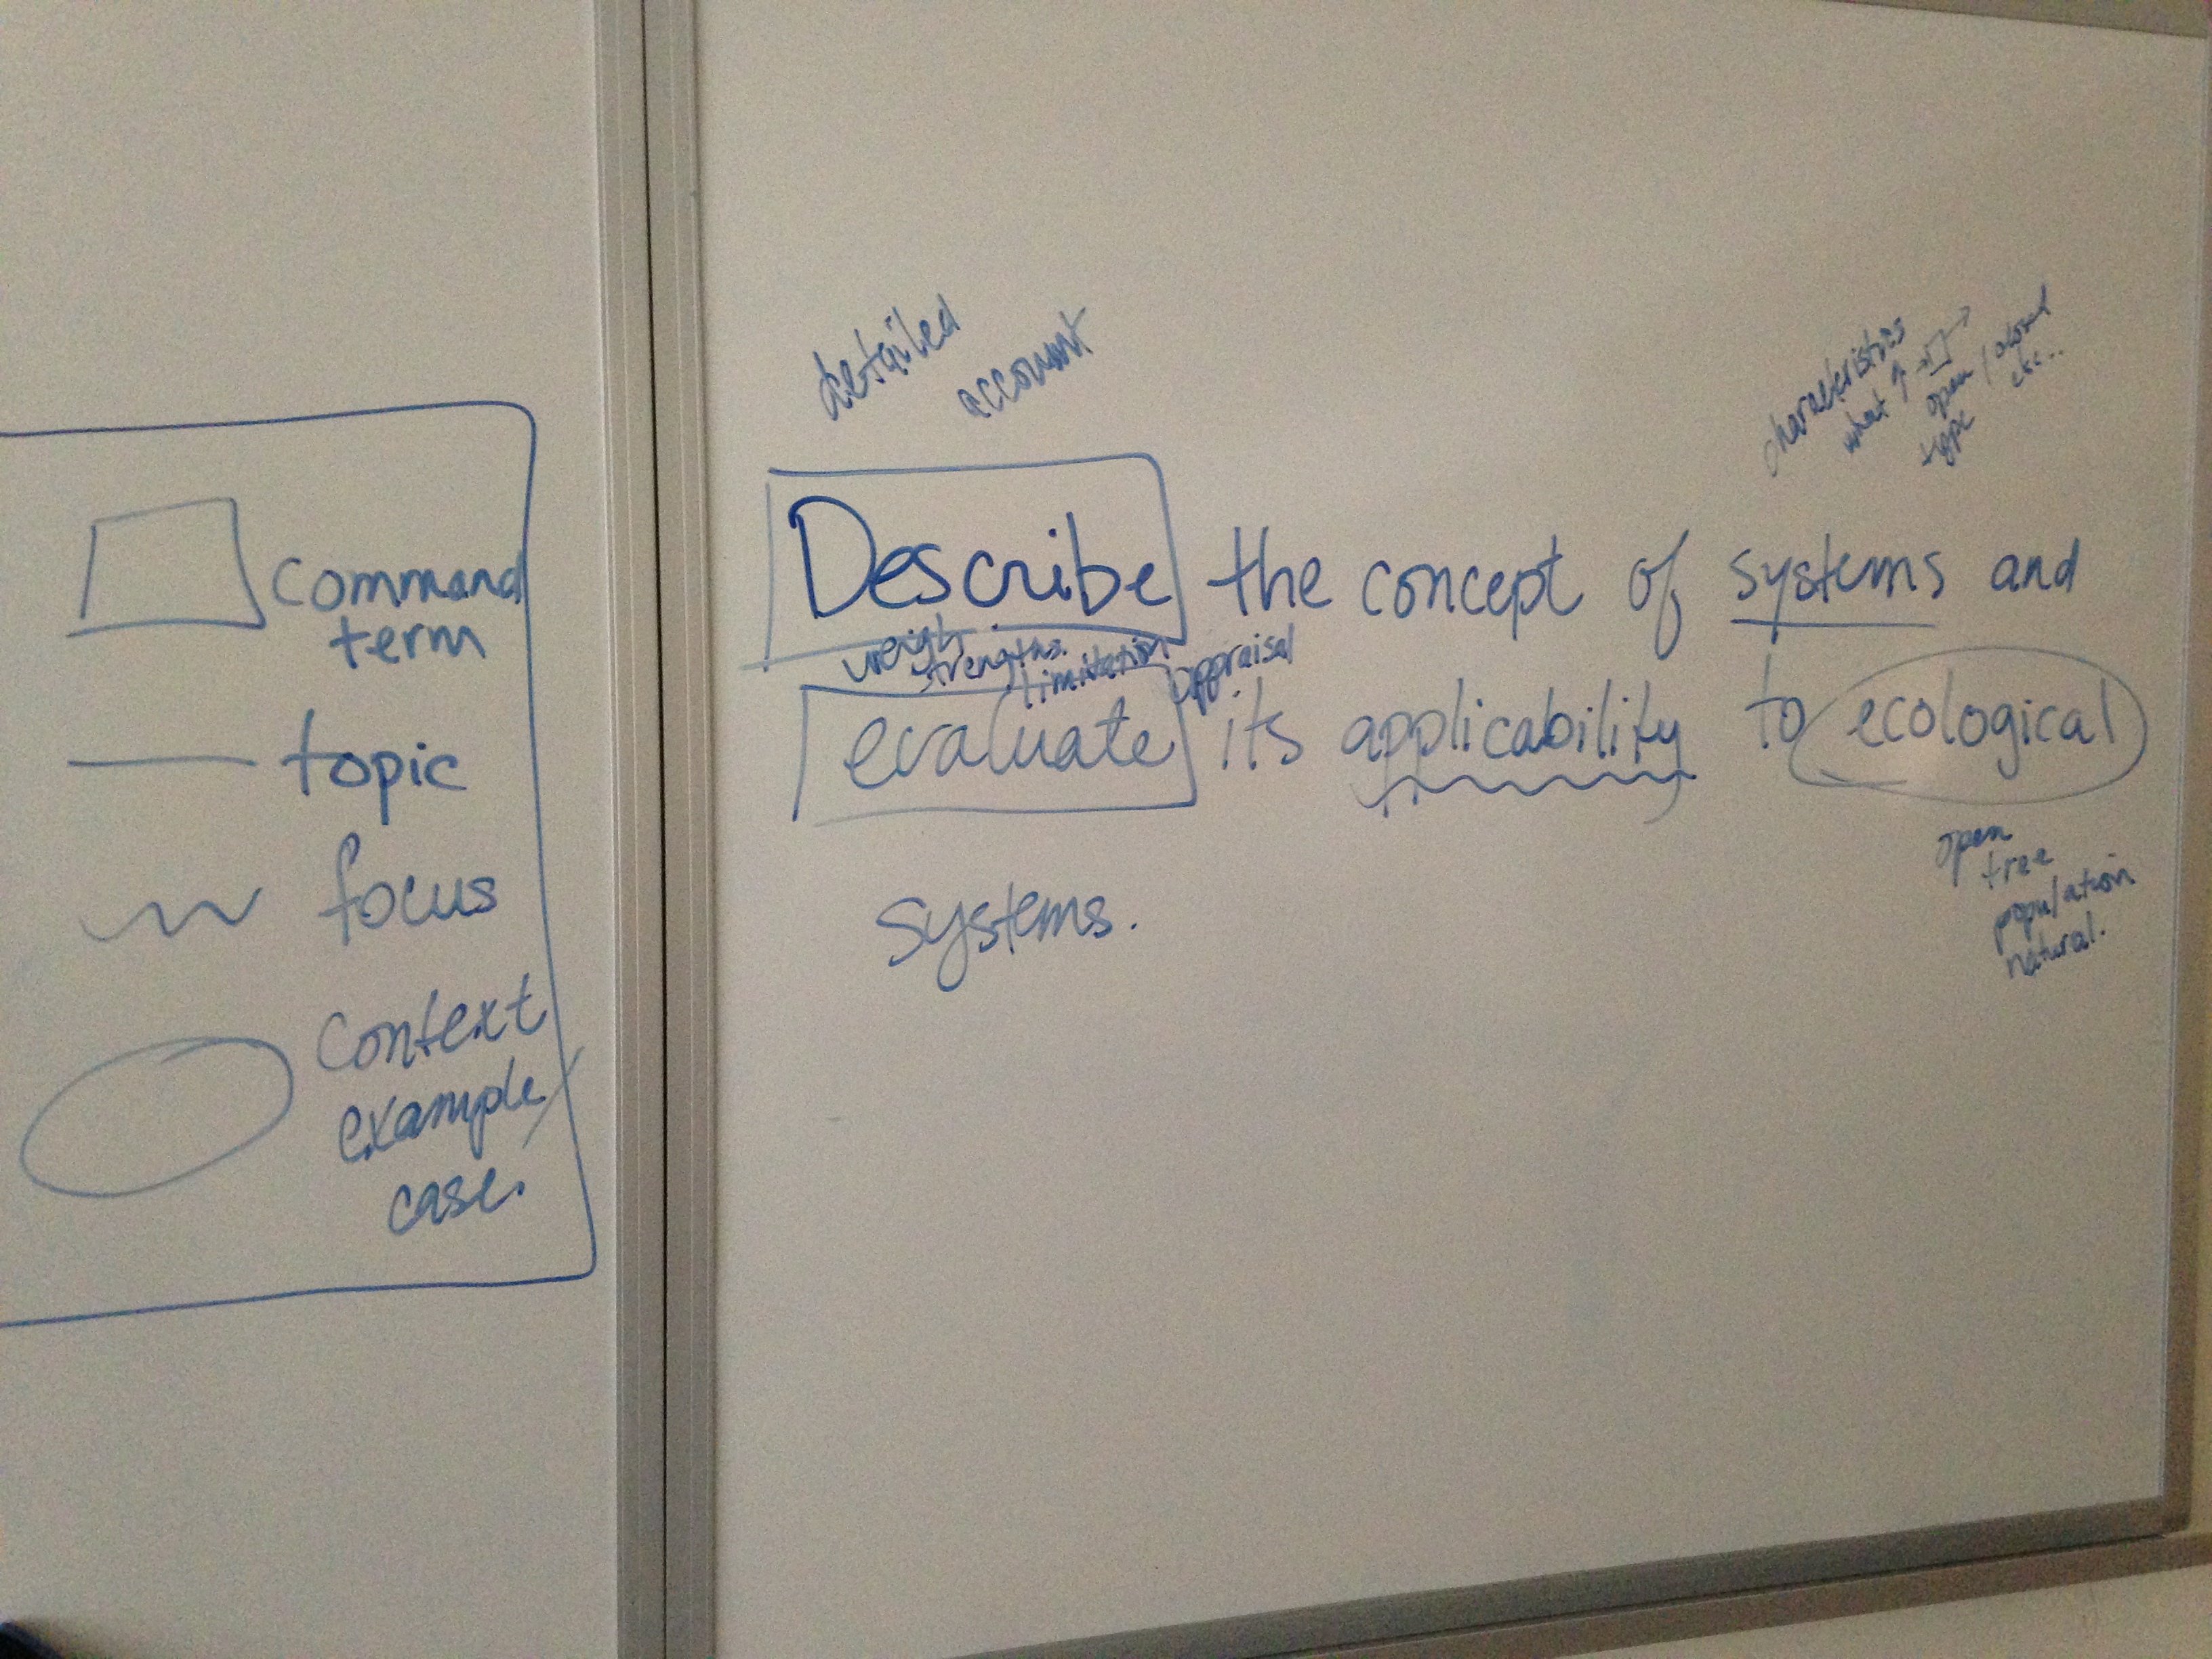 command
term
topic
focus
context
example/
case.
detailed
account
characteristics
what
open / closed
type etc..
Describe the concept of systems and
weigh
strengths.
limitation
appraisal
evaluate its applicability to ecological
open
tree
population
natural.
systems.